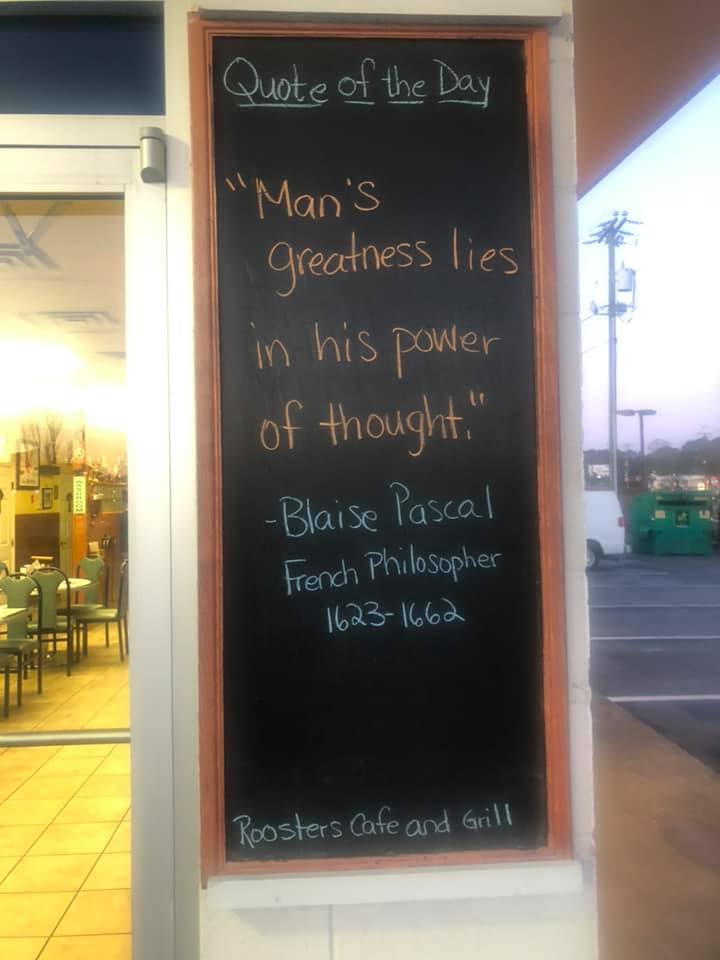 Quote of the Day
"Man's
greatness lies
in his power
of thought."
-Blaise Pascal
French Philosopher
1623-1662
Roosters Cafe and Grill